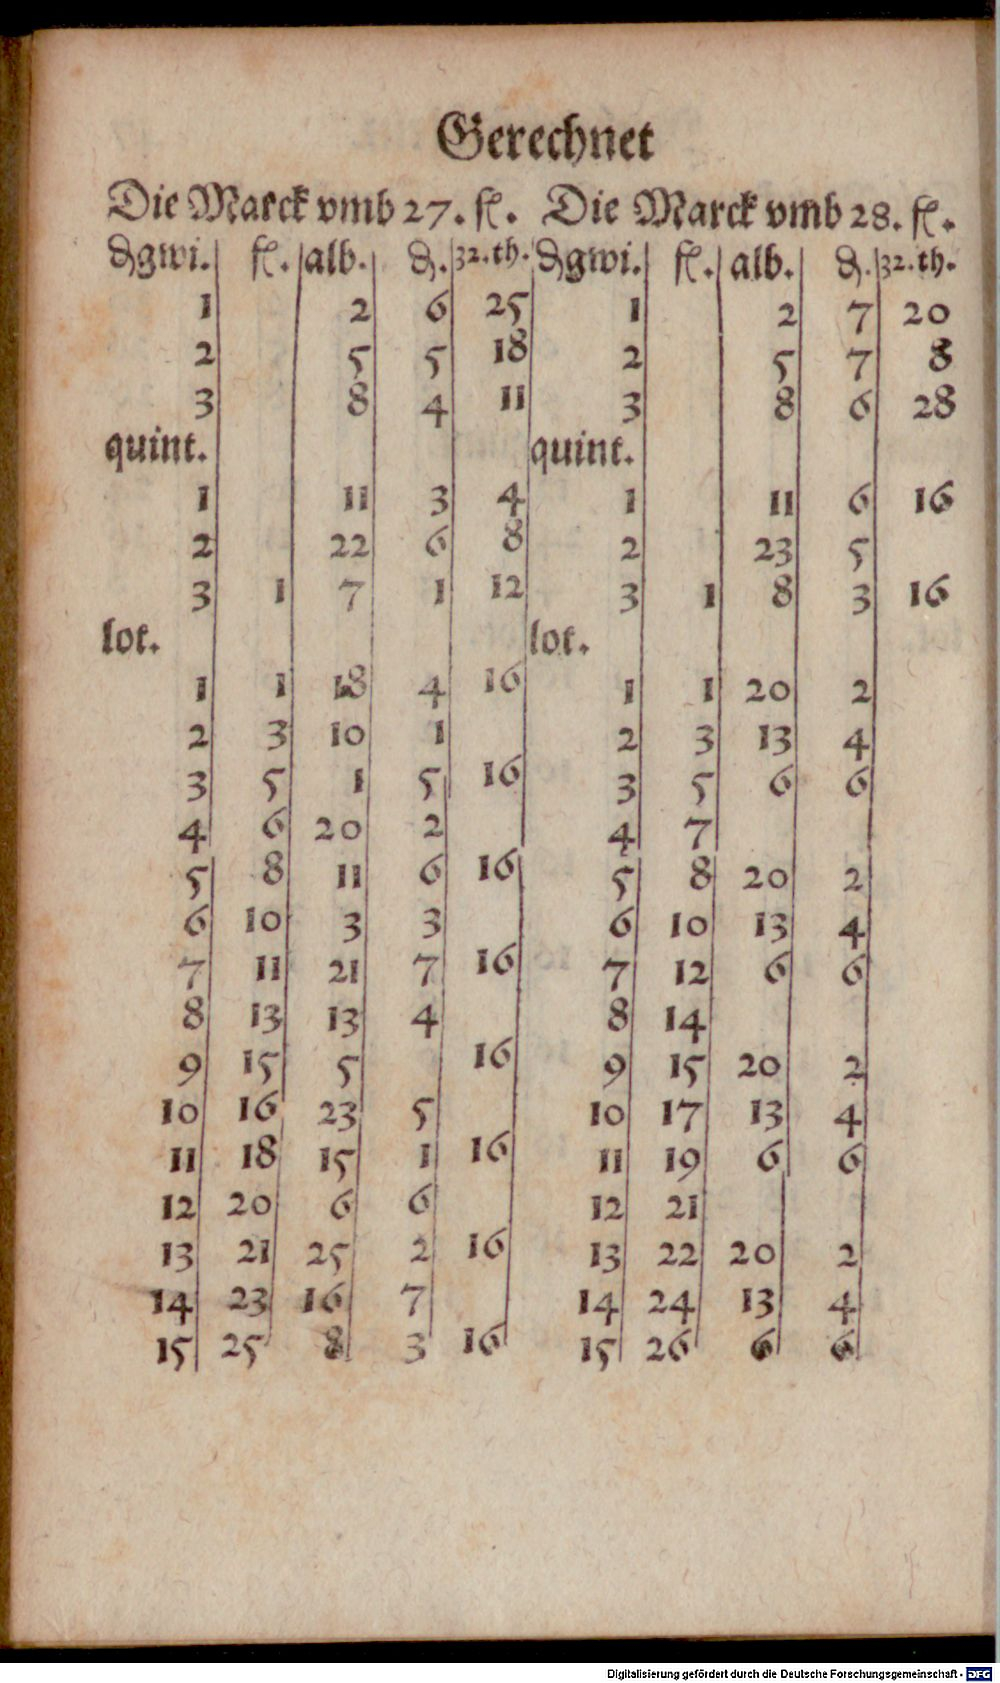 Gerechnet
Die Marck vmb 27. fl. Die Marck vmb 28. fl.
₰gwi. fl. alb. ₰. 32.th. ₰gwi. fl. alb. ₰. 32.th.
1 2 6 25 1 2 7 20
2 5 5 18 2 5 7 8
3 8 4 11 3 8 6 28
quint. quint.
1 11 3 4 1 11 6 16
2 22 6 8 2 23 5
3 1 7 1 12 3 1 8 3 16
lot. lot.
1 1 18 4 16 1 1 20 2
2 3 10 1 2 3 13 4
3 5 1 5 16 3 5 6 6
4 6 20 2 4 7
5 8 11 6 16 5 8 20 2
6 10 3 3 6 10 13 4
7 11 21 7 16 7 12 6 6
8 13 13 4 8 14
9 15 5 16 9 15 20 2
10 16 23 5 10 17 13 4
11 18 15 1 16 11 19 6 6
12 20 6 6 12 21
13 21 25 2 16 13 22 20 2
14 23 16 7 14 24 13 4
15 25 8 3 16 15 26 6 6
Digitalisierung gefördert durch die Deutsche Forschungsgemeinschaft - DFG